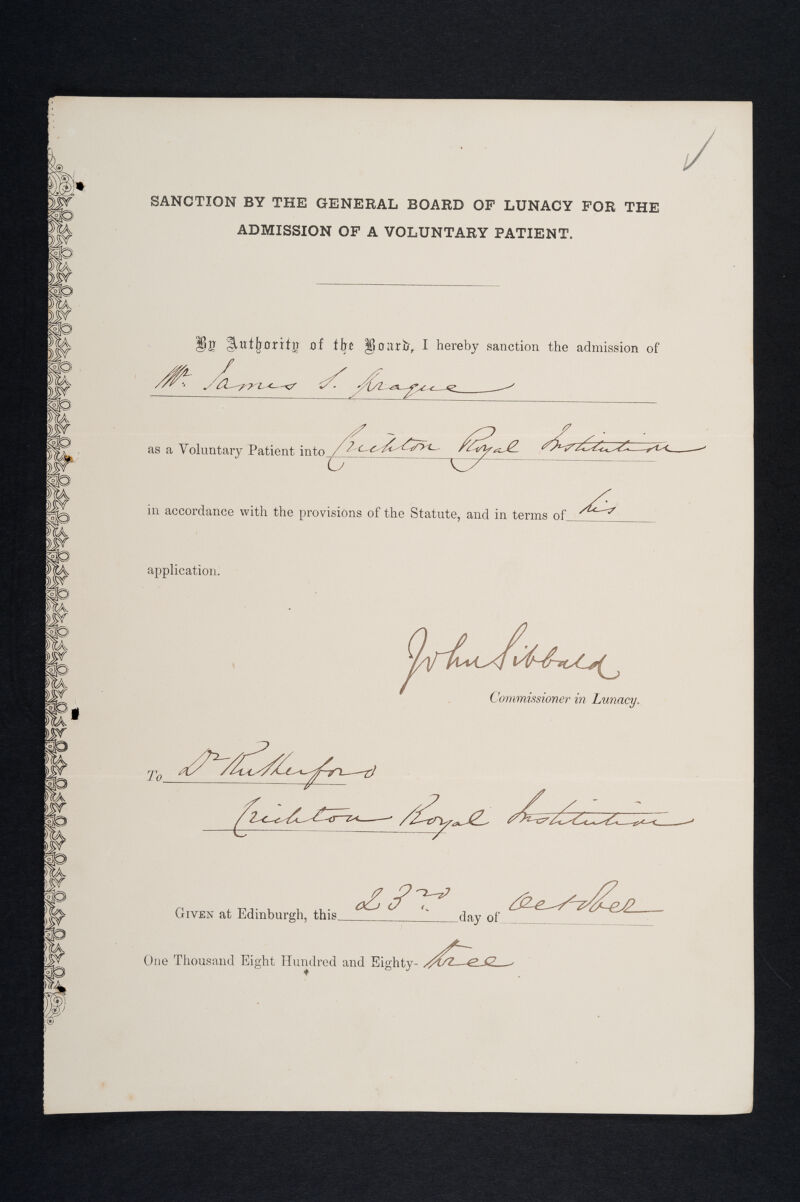 SANCTION BY THE GENERAL BOARD OF LUNACY FOR THE
ADMISSION OF A VOLUNTARY PATIENT.
By Authority of the Board, I hereby sanction the admission of
Mr. James S. Sprague
as a Voluntary Patient into Crichton Royal Institution
in accordance with the provisions of the Statute, and in terms of his
application.
John Sibbald
Commissioner in Lunacy.
To Dr Rutherford
Crichton Royal Institution
GIVEN at Edinburgh, this 23rd day of October
One Thousand Eight Hundred and Eighty- three